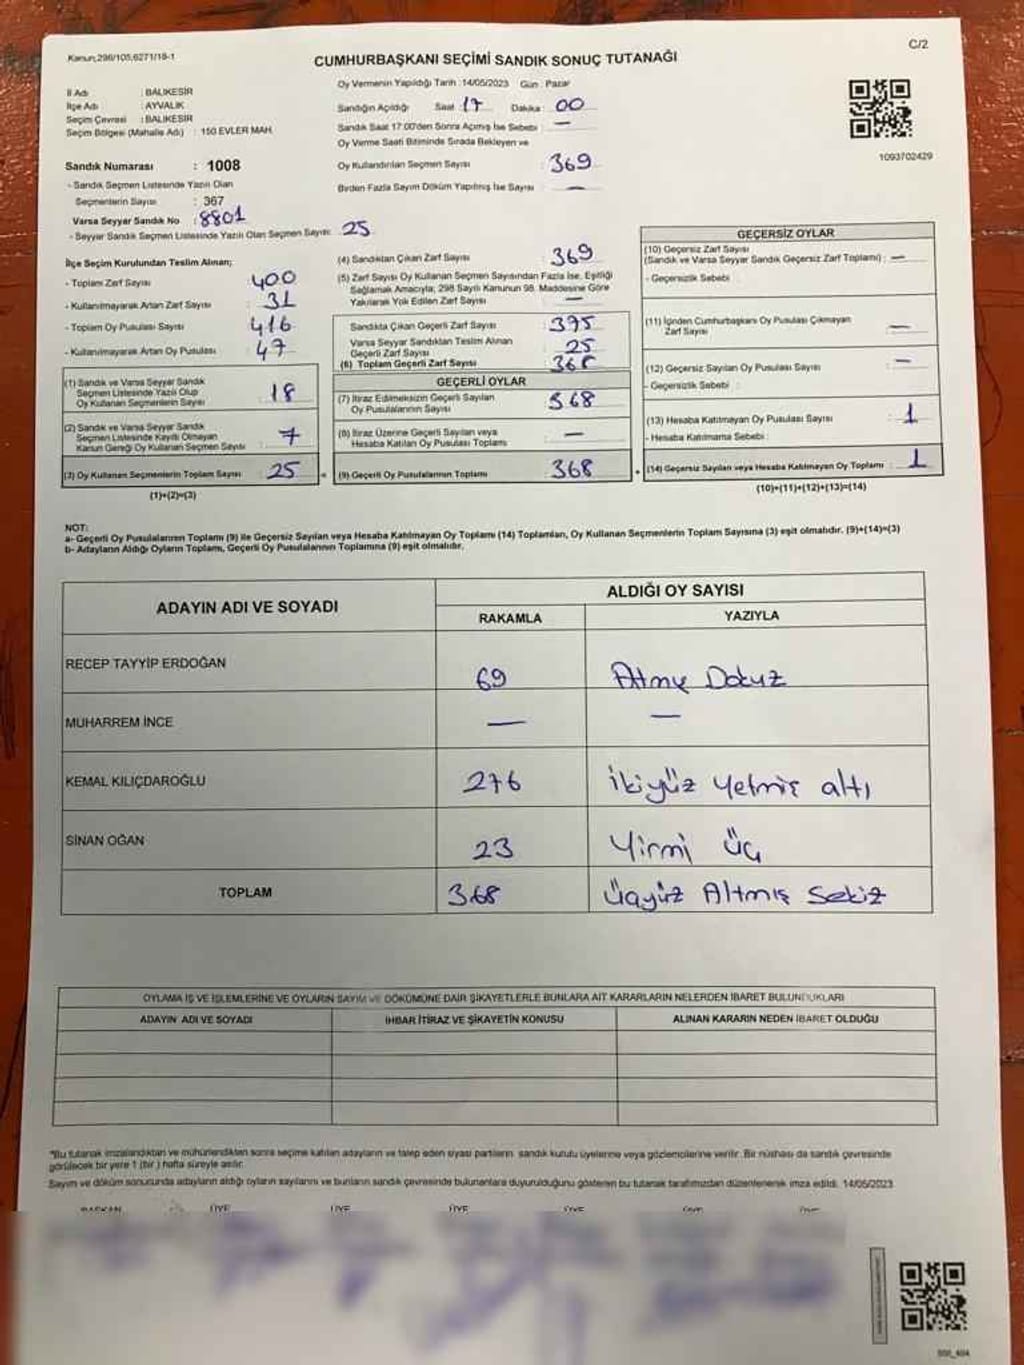 C/2
Kanun;298/105,6271/18-1
CUMHURBAŞKANI SEÇİMİ SANDIK SONUÇ TUTANAĞI
İl Adı : BALIKESİR
İlçe Adı : AYVALIK
Seçim Çevresi : BALIKESİR
Seçim Bölgesi (Mahalle Adı) : 150 EVLER MAH.
Sandık Numarası : 1008
- Sandık Seçmen Listesinde Yazılı Olan
Seçmenlerin Sayısı : 367
Varsa Seyyar Sandık No : 8801
- Seyyar Sandık Seçmen Listesinde Yazılı Olan Seçmen Sayısı: 25
Oy Vermenin Yapıldığı Tarih :14/05/2023 Gün : Pazar
Sandığın Açıldığı Saat 17 Dakika : 00
Sandık Saat 17:00'den Sonra Açımış İse Sebebi : —
Oy Verme Saati Bitiminde Sırada Bekleyen ve
Oy Kullandırılan Seçmen Sayısı : 369
Birden Fazla Sayım Döküm Yapılmış İse Sayısı : —
1093702429
İlçe Seçim Kurulundan Teslim Alınan;
- Toplam Zarf Sayısı : 400
- Kullanılmayarak Artan Zarf Sayısı : 31
- Toplam Oy Pusulası Sayısı : 416
- Kullanılmayarak Artan Oy Pusulası : 47
(1) Sandık ve Varsa Seyyar Sandık
Seçmen Listesinde Yazılı Olup
Oy Kullanan Seçmenlerin Sayısı : 18
(2) Sandık ve Varsa Seyyar Sandık
Seçmen Listesinde Kayıtlı Olmayan
Kanun Gereği Oy Kullanan Seçmen Sayısı : 7
(3) Oy Kullanan Seçmenlerin Toplam Sayısı : 25
(1)+(2)=(3)
(4) Sandıktan Çıkan Zarf Sayısı : 369
(5) Zarf Sayısı Oy Kullanan Seçmen Sayısından Fazla İse, Eşitliği
Sağlamak Amacıyla; 298 Sayılı Kanunun 98. Maddesine Göre
Yakılarak Yok Edilen Zarf Sayısı : —
Sandıkta Çıkan Geçerli Zarf Sayısı : 375
Varsa Seyyar Sandıktan Teslim Alınan
Geçerli Zarf Sayısı : 25
(6) Toplam Geçerli Zarf Sayısı : 368
GEÇERLİ OYLAR
(7) İtiraz Edilmeksizin Geçerli Sayılan
Oy Pusulalarının Sayısı : 368
(8) İtiraz Üzerine Geçerli Sayılan veya
Hesaba Katılan Oy Pusulası Toplamı : —
(9) Geçerli Oy Pusulalarının Toplamı : 368
GEÇERSİZ OYLAR
(10) Geçersiz Zarf Sayısı
(Sandık ve Varsa Seyyar Sandık Geçersiz Zarf Toplamı) : —
- Geçersizlik Sebebi :
(11) İçinden Cumhurbaşkanı Oy Pusulası Çıkmayan
Zarf Sayısı : —
(12) Geçersiz Sayılan Oy Pusulası Sayısı : —
- Geçersizlik Sebebi :
(13) Hesaba Katılmayan Oy Pusulası Sayısı : 1
- Hesaba Katılmama Sebebi :
(14) Geçersiz Sayılan veya Hesaba Katılmayan Oy Toplamı : 1
(10)+(11)+(12)+(13)=(14)
NOT:
a- Geçerli Oy Pusulalarının Toplamı (9) ile Geçersiz Sayılan veya Hesaba Katılmayan Oy Toplamı (14) Toplamları, Oy Kullanan Seçmenlerin Toplam Sayısına (3) eşit olmalıdır. (9)+(14)=(3)
b- Adayların Aldığı Oyların Toplamı, Geçerli Oy Pusulalarının Toplamına (9) eşit olmalıdır.
ADAYIN ADI VE SOYADI
ALDIĞI OY SAYISI
RAKAMLA YAZIYLA
RECEP TAYYİP ERDOĞAN 69 Altmış Dokuz
MUHARREM İNCE — —
KEMAL KILIÇDAROĞLU 276 İkiyüz Yetmiş altı
SİNAN OĞAN 23 Yirmi üç
TOPLAM 368 Üçyüz Altmış Sekiz
OYLAMA İŞ VE İŞLEMLERİNE VE OYLARIN SAYIM VE DÖKÜMÜNE DAİR ŞİKAYETLERLE BUNLARA AİT KARARLARIN NELERDEN İBARET BULUNDUKLARI
ADAYIN ADI VE SOYADI İHBAR İTİRAZ VE ŞİKAYETİN KONUSU ALINAN KARARIN NEDEN İBARET OLDUĞU
*Bu tutanak imzalandıktan ve mühürlendikten sonra seçime katılan adayların ve talep eden siyasi partilerin sandık kurulu üyelerine veya gözlemcilerine verilir. Bir nüshası da sandık çevresinde
görülecek bir yere 1 (bir ) hafta süreyle asılır.
Sayım ve döküm sonucunda adayların aldığı oyların sayılarını ve bunların sandık çevresinde bulunanlara duyurulduğunu gösteren bu tutanak tarafımızdan düzenlenerek imza edildi. 14/05/2023
BAŞKAN ÜYE ÜYE ÜYE ÜYE ÜYE ÜYE